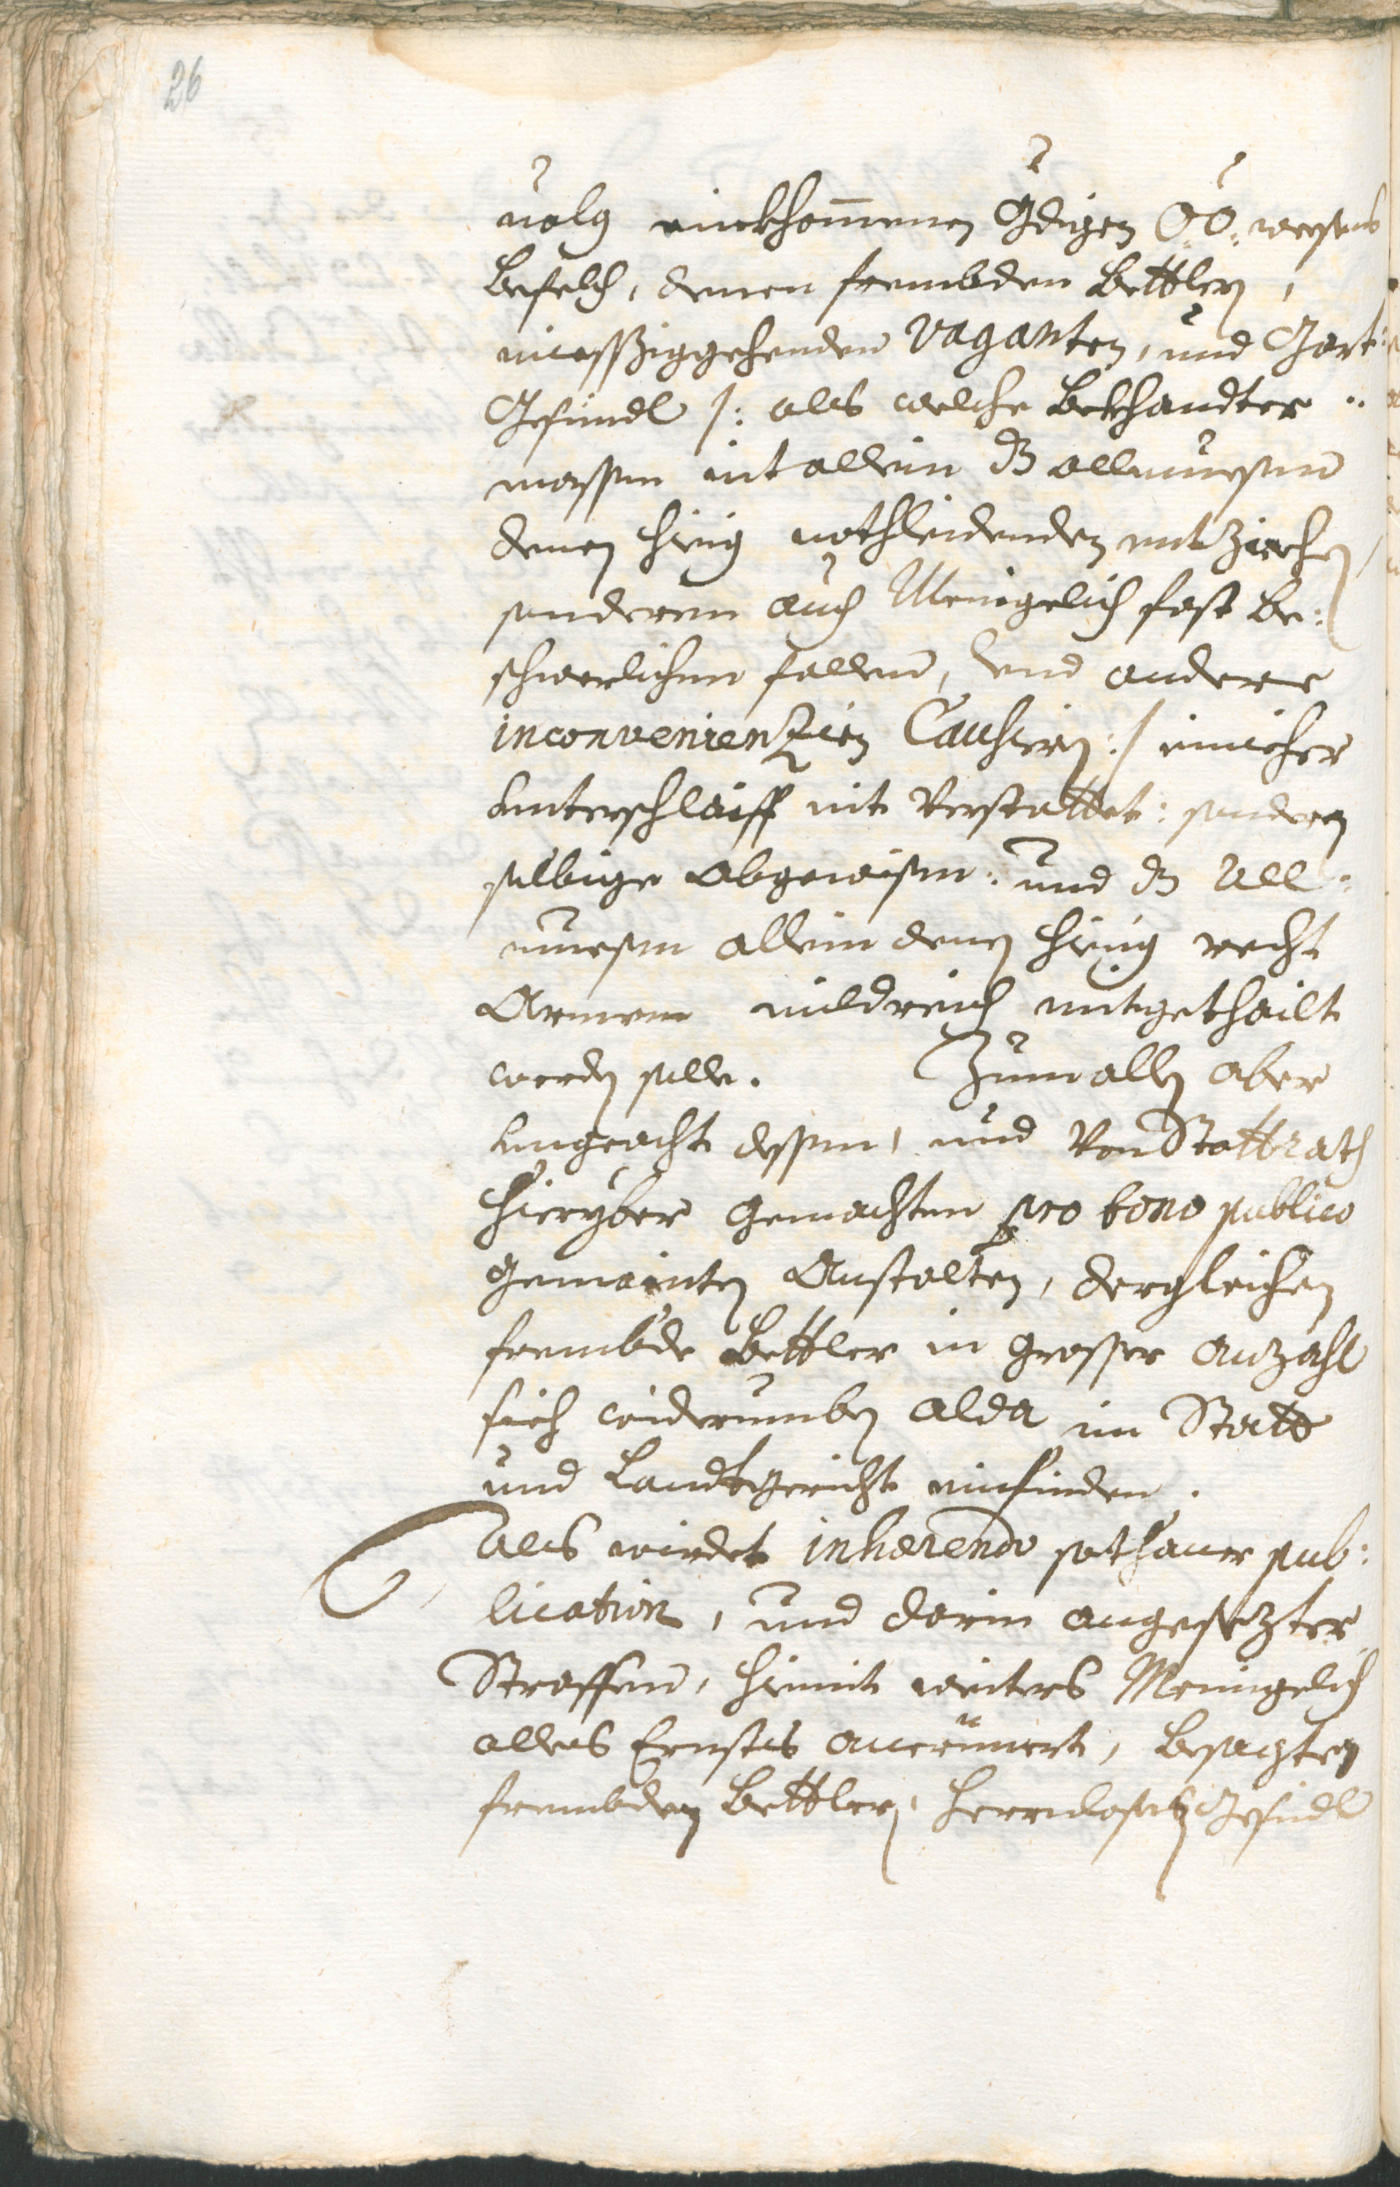 26
uolg einkhom̄enen Gdigen OÖ: weesens
Befelch, denen frembden Bettlern,
miessiggehenden Vaganten, und Gart:
Gesündl /: als welche bekhandter..
massen nit allein dz allmuesen
denen hieig nothleidenden entziechen,
sonderen auch Menigelich fast be:
schwerlichen fallen, und andere
inconvenienzien Causiern :/ einicher
Unterschlaiff nit verstattet: sonderen
selbige abgewisen: und dz All:
muesen allein denen hieig recht
Armen mildreich mitgethailt
werden solle. Zumallen aber
Ungeacht dessen, und von Stattrath
hieryber gemachten pro bono publico
gemainten Anstalten, dergleichen
frembde Bettler in grosser anzahl
sich widerumben alda in Statt
und Landtgericht einfinden.
Als wirdet inhærendo sothaner pub:
lication, und darin angesetzter
Straffen, hiemit weiters Menigelich
alles Ernstes anerinert, besagten
frembden Bettlern, herrnlosen Gesindl